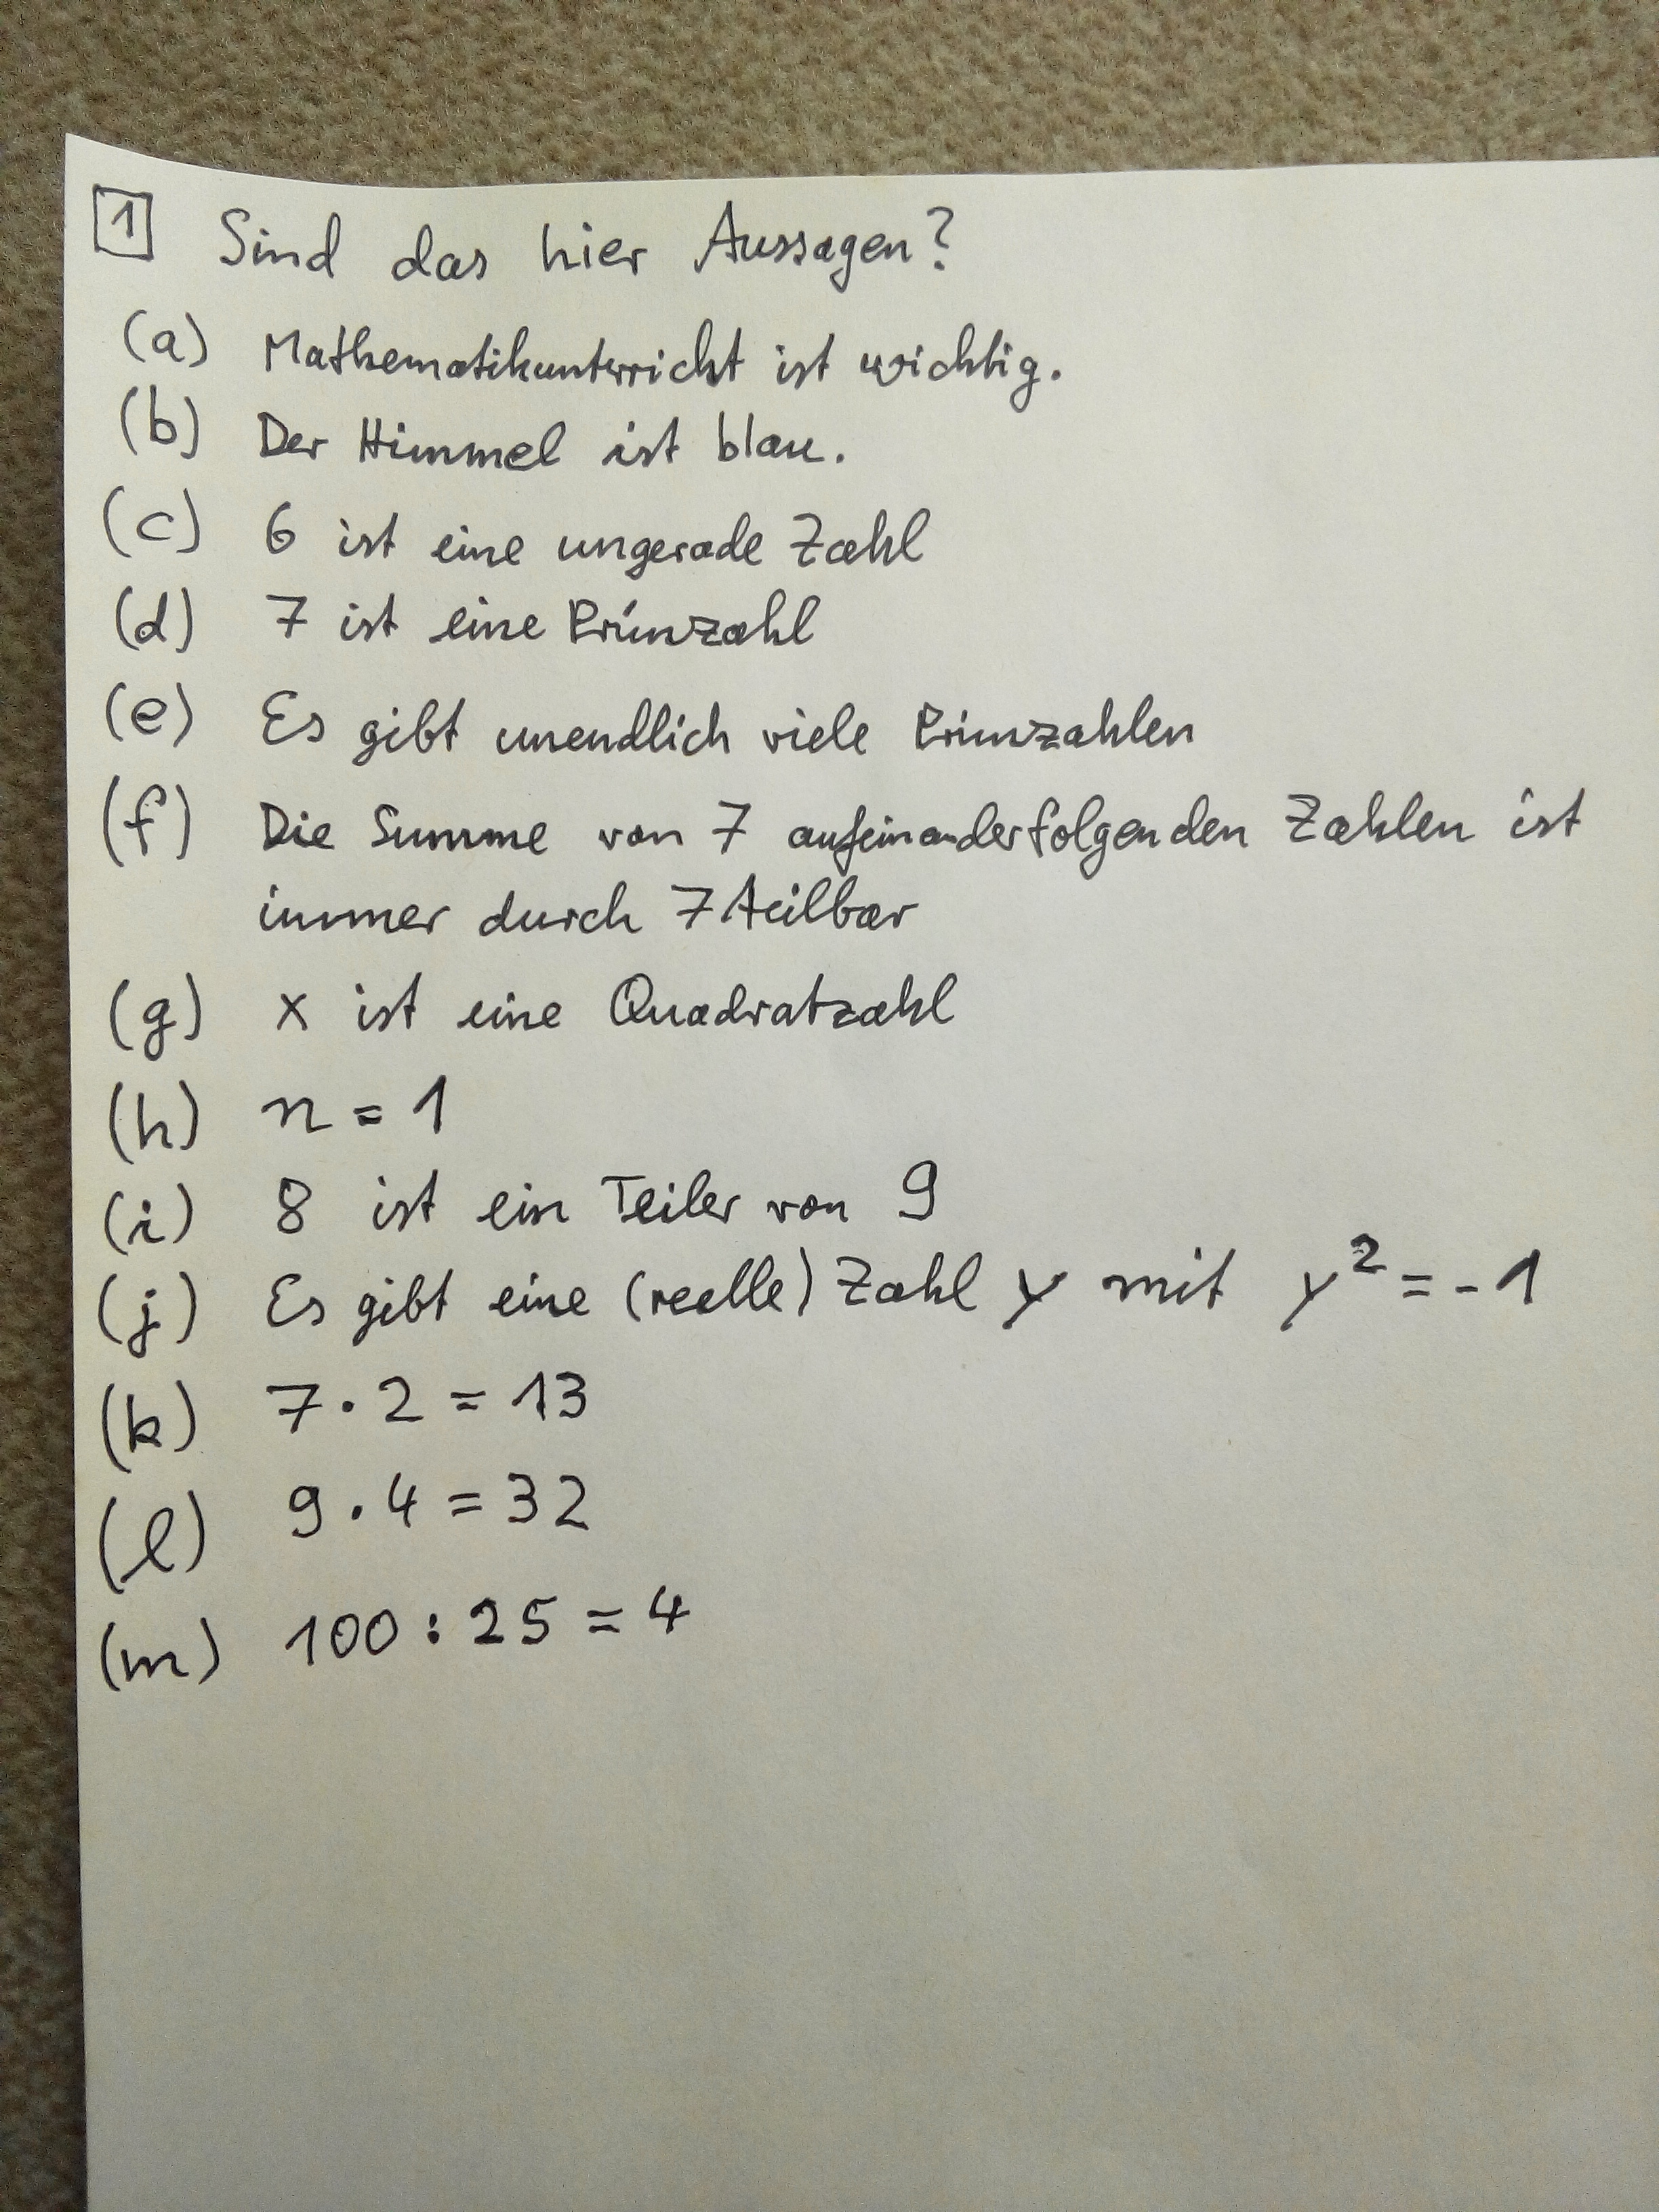 1 Sind das hier Aussagen?
(a) Mathematikunterricht ist wichtig.
(b) Der Himmel ist blau.
(c) 6 ist eine ungerade Zahl
(d) 7 ist eine Primzahl
(e) Es gibt unendlich viele Primzahlen
(f) Die Summe von 7 aufeinanderfolgenden Zahlen ist
immer durch 7 teilbar
(g) x ist eine Quadratzahl
(h) n = 1
(i) 8 ist ein Teiler von 9
(j) Es gibt eine (reelle) Zahl y mit y² = -1
(k) 7 · 2 = 13
(l) 9 · 4 = 32
(m) 100 : 25 = 4